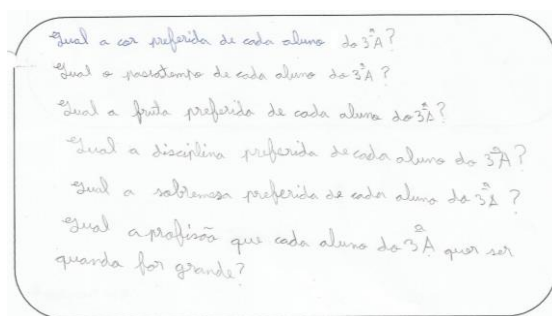 Qual a cor preferida de cada aluno do 3ºA?
Qual o passatempo de cada aluno do 3ºA?
Qual a fruta preferida de cada aluno do 3ºA?
Qual a disciplina preferida de cada aluno do 3ºA?
Qual a sobremesa preferida de cada aluno do 3ºA?
Qual a profisão que cada aluno do 3ºA quer ser
quando for grande?